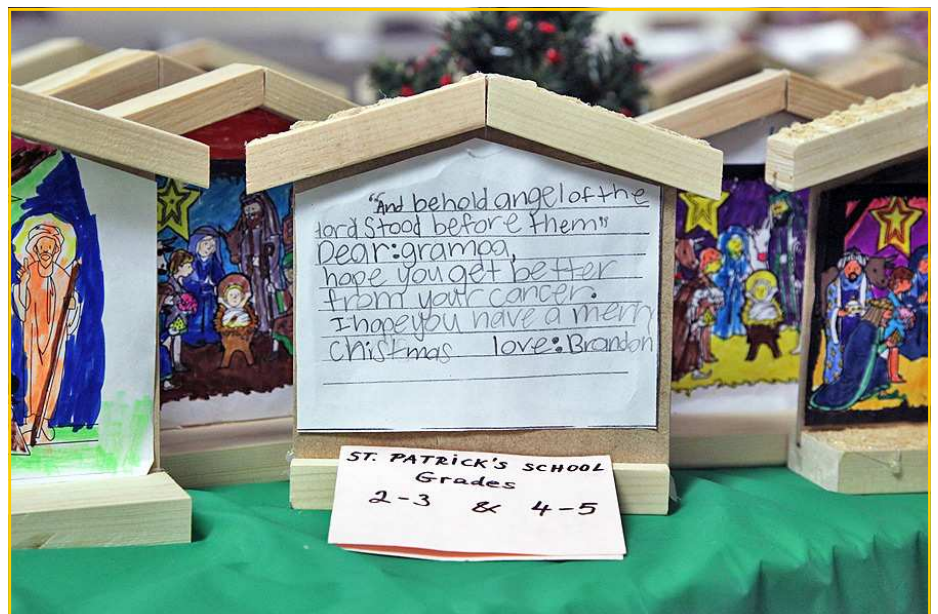 "And behold angel of the
lord stood before them"
Dear:grampa,
hope you get better
from your cancer.
I hope you have a merry
Chistmas love:Brandon
ST. PATRICK'S SCHOOL
Grades
2-3 & 4-5